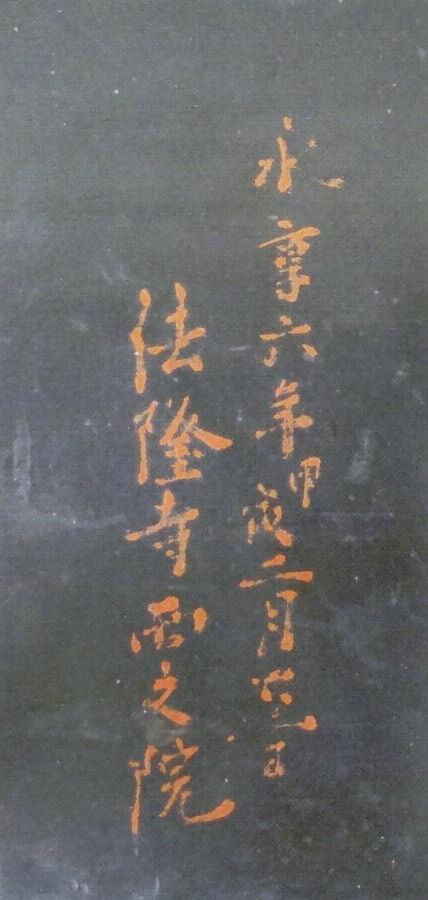 永享六年甲寅二月日
法隆寺西之院